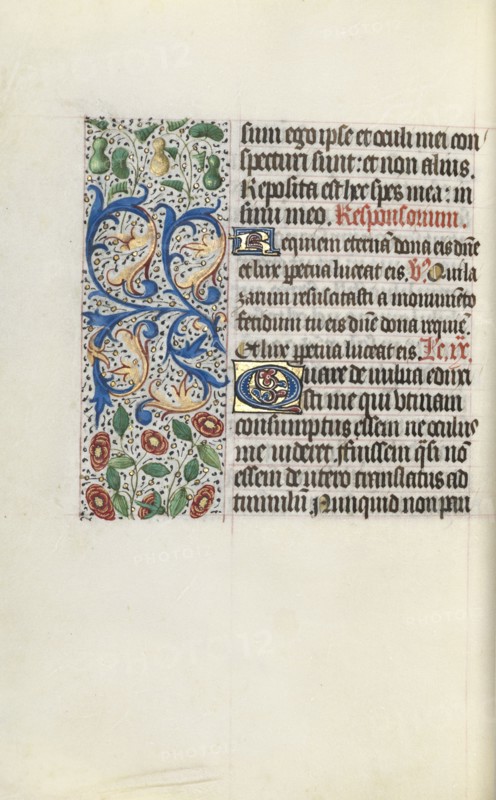 sum ego ipse et oculi mei con
specturi sunt: et non alius.
Reposita est hec spes mea: in
sinu meo. Responsorium.
Requiem eternã dona eis dñe
et lux ꝑpetua luceat eis. V̾ Qui la
zarum resuscitasti a monumẽto
fetidum tu eis dñe dona requiẽ.
Et lux ꝑpetua luceat eis. Lc. ix.
Quare de vulua eduxi
sti me qui vtinam
consumptus essem ne oculus
me videret ffuissem q̃si nõ
essem de vtero translatus ad
tumulũ Nunquid non pau